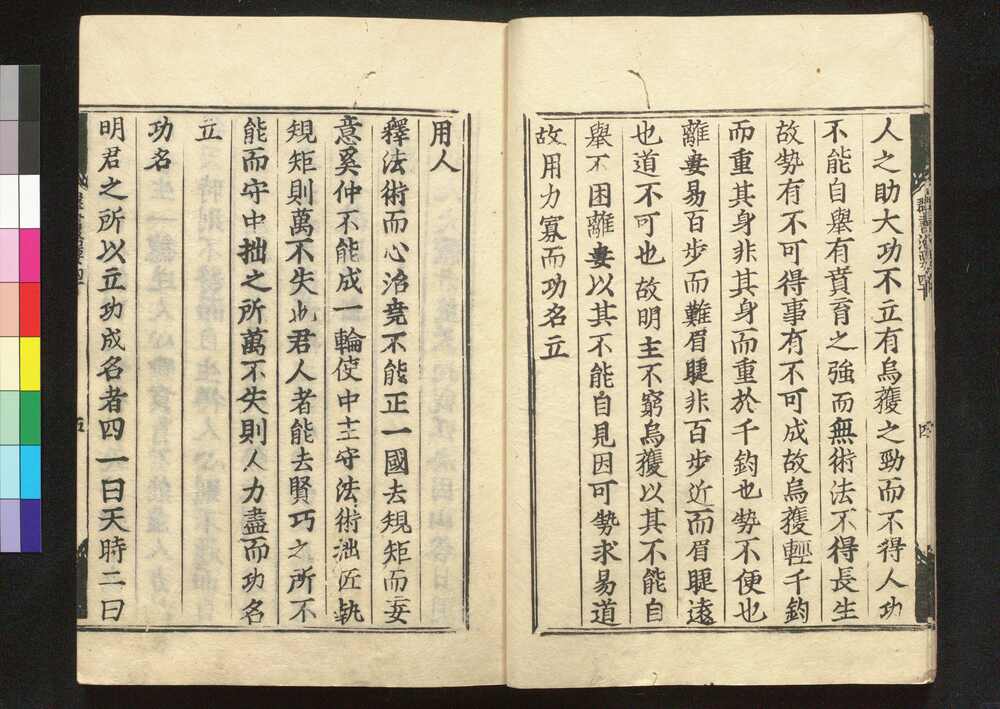 人之助大功不立有烏獲之勁而不得人功
不能自舉有賁育之強而無術法不得長生
故勢有不可得事有不可成故烏獲輕千鈞
而重其身非其身而重於千鈞也勢不便也
離婁易百步而難眉睫非百步近而眉睫遠
也道不可也故明主不窮烏獲以其不能自
舉不困離婁以其不能自見因可勢求易道
故用力寡而功名立
用人
釋法術而心治堯不能正一國去規矩而妄
意奚仲不能成一輪使中主守法術拙匠執
規矩則萬不失此君人者能去賢巧之所不
能而守中拙之所萬不失則人力盡而功名
立
功名
明君之所以立功成名者四一曰天時二曰
群書治要卌
四
五